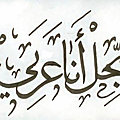 سجل أنا عربي